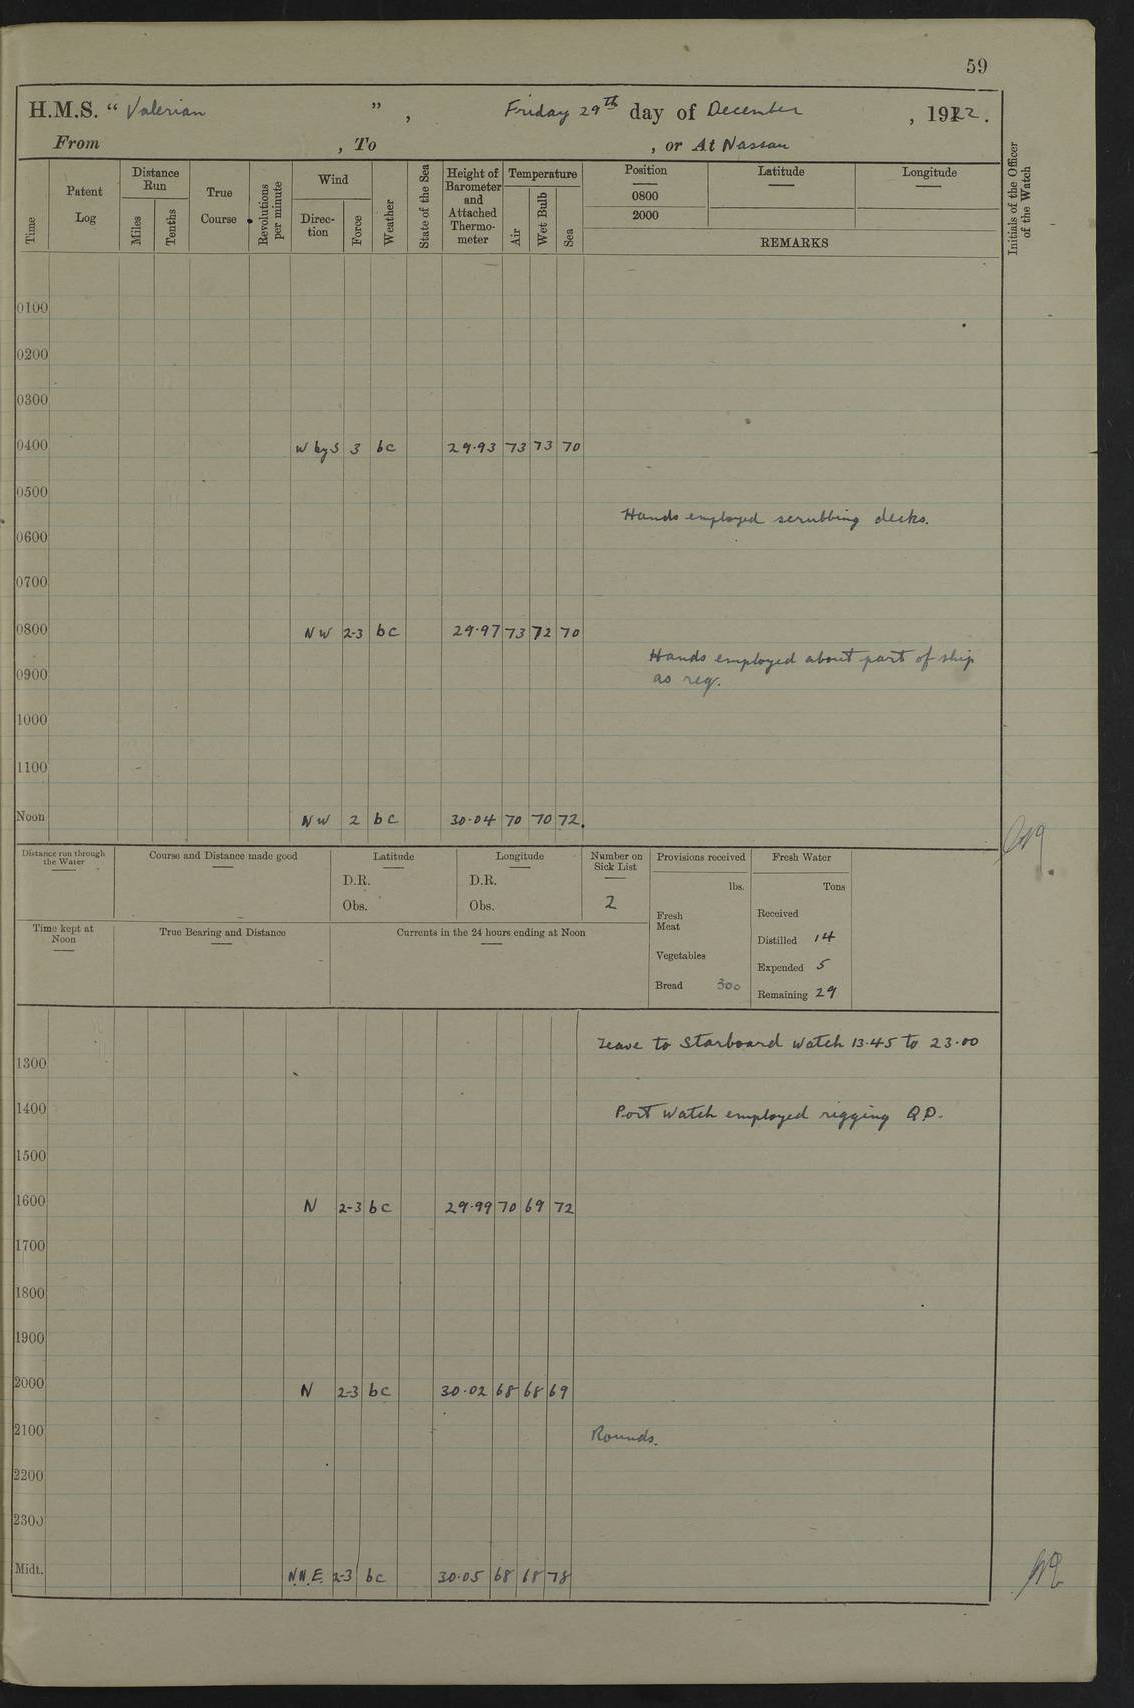 59
H.M.S. “ Valerian ”, Friday 29th day of December, 1922.
From , To , or At Nassau
Time
Patent Log
Distance Run
Miles
Tenths
True Course
Revolutions per minute
Wind
Direction
Force
Weather
State of the Sea
Height of Barometer and Attached Thermometer
Temperature
Air
Wet Bulb
Sea
Position
0800
2000
Latitude
Longitude
REMARKS
Initials of the Officer of the Watch
0100
0200
0300
0400 W by S 3 bc 29.93 73 73 70
0500
Hands employed scrubbing decks.
0600
0700
0800 NW 2-3 bc 29.97 73 72 70
Hands employed about part of ship
0900 as req.
1000
1100
Noon NW 2 bc 30.04 70 70 72.
Distance run through the Water
Course and Distance made good
Latitude
D.R.
Obs.
Longitude
D.R.
Obs.
Number on Sick List
2
Provisions received
lbs.
Fresh Meat
Vegetables
Bread 300
Fresh Water
Tons
Received
Distilled 14
Expended 5
Remaining 29
Time kept at Noon
True Bearing and Distance
Currents in the 24 hours ending at Noon
Leave to Starboard Watch 13.45 to 23.00
1300
1400 Port Watch employed rigging Q.D.
1500
1600 N 2-3 bc 29.99 70 69 72
1700
1800
1900
2000 N 2-3 bc 30.02 68 68 69
2100 Rounds.
2200
2300
Midt. N.N.E. 2-3 bc 30.05 68 68 78